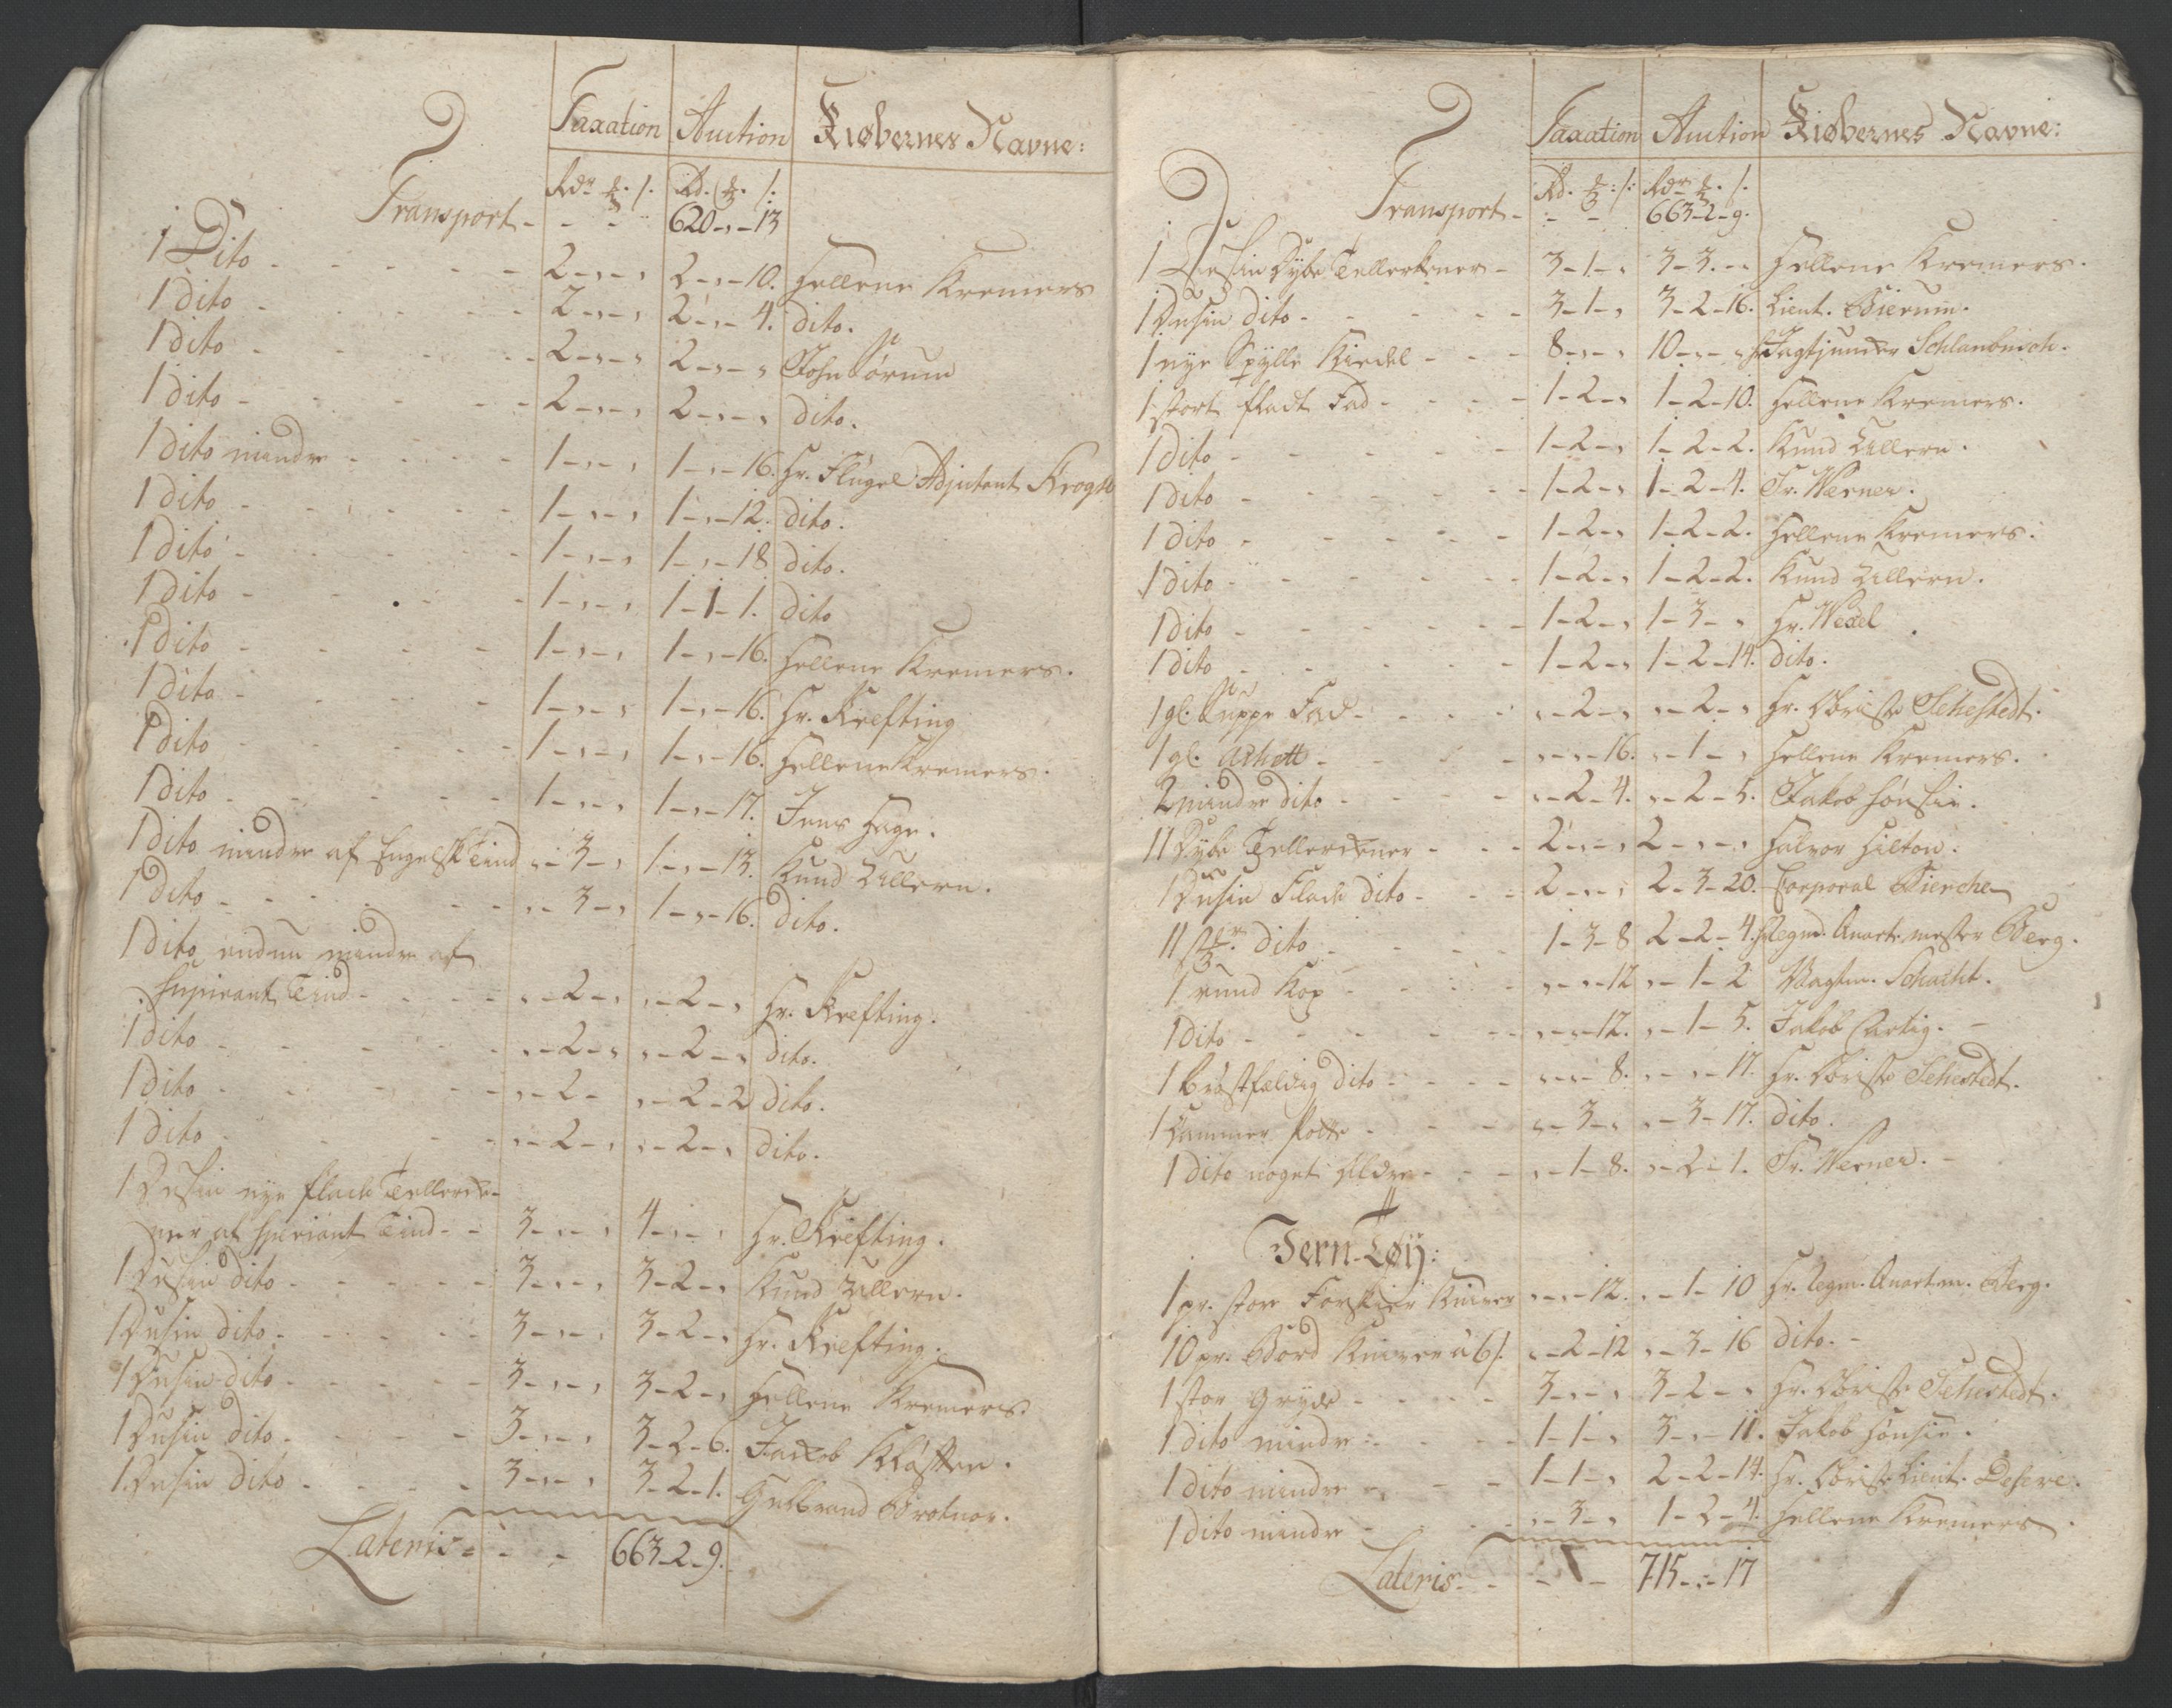 Taxation Auction Kiøbernes Navne:
Rdr ƺ. /. Rd. ƺ. /.
Transport - - - 620 - „ - 13
1 Dito - - - - - 2 - „ - „ 2 - „ - 10. Hellene Kremers
1 dito - - - - - 2 - „ - „ 2 - „ - 4. dito.
1 dito - - - - - 2 - „ - „ 2 - „ - „ John Sørum
1 dito - - - - - 2 - „ - „ 2 - „ - „ dito.
1 dito mindre - - - - 1 - „ - „ 1 - „ - 16. Hr. Flügel Adjutant Krogh
1 dito - - - - - 1 - „ - „ 1 - „ - 12. dito.
1 dito - - - - - 1 - „ - „ 1 - „ - 18 dito.
1 dito - - - - - 1 - „ - „ 1 - 1 - 1. dito
1 dito - - - - - 1 - „ - „ 1 - „ - 16. Hellene Kremers.
1 dito - - - - - 1 - „ - „ 1 - „ - 16. Hr. Krefting
1 dito - - - - - 1 - „ - „ 1 - „ - 16. Hellene Kremers.
1 dito - - - - - 1 - „ - „ 1 - „ - 17. Jens Hage.
1 dito mindre af Engelsk Tind „ - 3 - „ 1 - „ - 13. Knud Ullern.
1 dito - - - - - „ - 3 - „ 1 - „ - 16. dito.
1 dito endnu mindre af
Tind - - - - „ - 2 - „ „ - 2 - „ Hr. Krefting.
1 dito - - - - - „ - 2 - „ „ - 2 - „ dito.
1 dito - - - - - „ - 2 - „ - 2 - 2 dito.
1 dito - - - - - „ - 2 - „ „ - 2 - „ dito.
1 Dusin nye flade Tellerke-
ner af Tind - - 3 - „ - „ 4 - „ - „ Hr. Krefting.
1 Dusin dito - - - - - 3 - „ - „ 3 - 2 - „ Knud Ullern.
1 Dusin dito - - - - - 3 - „ - „ 3 - 2 - „ Hr. Krefting.
1 Dusin dito - - - - - 3 - „ - „ 3 - 2 - „ Hellene Kremers.
1 Dusin dito - - - - 3 - „ - „ 3 - 2 - 6. Jacob Kløften.
1 Dusin dito - - - - 3 - „ - „ 3 - 2 - 1. Gulbrand Brotnor.
Lateris - - - 663 - 2 - 9.
Taxation Auction Kiøbernes Navne:
Rd. ƺ: /: Rdr ƺ. /.
Transport - - - 663 - 2 - 9.
1 Dusin Dybe Tellerkener - 3 - 1 - „ 3 - 3 - „ Hellene Kremers.
1 Dusin dito - - - - - 3 - 1 - „ 3 - 2 - 16. Lieut. Bierum.
1 nye Spylle Kiedel - - - 8 - „ - „ 10 - „ - „ Hr Jagtjunker Schlanbusch.
1 stort fladt Fad - - - - 1 - 2 - „ 1 - 2 - 10. Hellene Kremers.
1 dito - - - - - 1 - 2 - „ 1 - 2 - 2. Knud Ullern.
1 dito - - - - - 1 - 2 - „ 1 - 2 - 4. Fr. Werner.
1 dito - - - - - 1 - 2 - „ 1 - 2 - 2. Hellene Kremers.
1 dito - - - - - 1 - 2 - „ 1 - 2 - 2. Knud Ullern.
1 dito - - - - - 1 - 2 - „ 1 - 3 - „ Hr. Wedel
1 dito - - - - - 1 - 2 - „ 1 - 2 - 14. dito.
1 gl. Suppe Fad - - - - „ - 2 - „ „ - 2 - „ Hr. Obriste Sehestedt.
1 gl. Achett - - - - „ - „ - 16. „ - 1 - „ Hellene Kremers.
2 mindre dito - - - - „ - 2 - 4. „ - 2 - 5. Jakob Hønsie.
11 Dybe Tellerkener - - - 2 - „ - „ 2 - „ - „ Halvor Hilton.
1 Dusin Flade dito - - - 2 - „ - „ 2 - 3 - 20. Corporal Bierche
11 st. dito - - - - 1 - 3 - 8 2 - 2 - 4. Hr Regmd. Quarte mester Berg.
1 rund Kop - - - - „ - „ - 12 „ - 1 - 2 Wagtm. Schacht.
1 dito - - - - - „ - „ - 12. „ - 1 - 5. Jakob Artig. -
1 brøstfældig dito - - - - „ - „ - 8. „ - „ - 17. Hr. Obriste Sehestedt.
1 Kammer Potte - - - - „ - 3 - „ „ - 3 - 17. dito.
1 dito noget Ældre - - - „ - 1 - 8. „ - 2 - 1. Fr. Werner. -
Jern-Tøij:
1 pr. store Forskier Kniver „ - „ - 12. „ - 1 - 10 Hr. Regm. Quartm. Berg.
10 pr. Bord Kniver à 6 /. „ - 2 - 12 „ - 3 - 16 dito. -
1 stor Gryde - - - - 3 - „ - „ 3 - 2 - „ Hr. Obriste Sehestedt.
1 dito mindre - - - - 1 - 1 - „ 3 - „ - 11. Jakob Hønsie.
1 dito mindre - - - - 1 - 1 - „ 2 - 2 - 14. Hr. Obrist Lieut. Desere.
1 dito mindre - - - - „ - 3 - „ 1 - 2 - 4. Hellene Kremers.
Lateris - - - - 715 - „ - 17